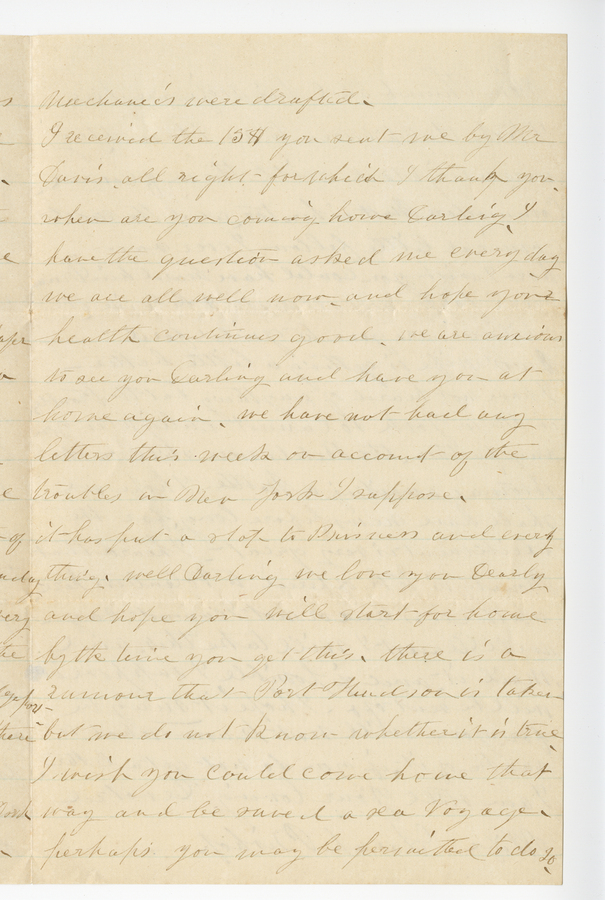 Mechanics were drafted.
I received the 15 $ you sent me by Mr
Davis all right for which I thank you.
when are you coming home Darling, I
have the question asked me every day
we are all well now and hope your
health continues good. we are anxious
to see you Darling and have you at
home again. we have not had any
letters this week on account of the
troubles in New York I suppose.
it has put a stop to Buisness and every
thing. well Darling we love you dearly
and hope you will start for home
by the time you get this. there is a
rumour that Port Hudson is taken
but we do not know whether it is true
I wish you could come home that
way and be saved a sea Voyage.
perhaps you may be permitted to do so.